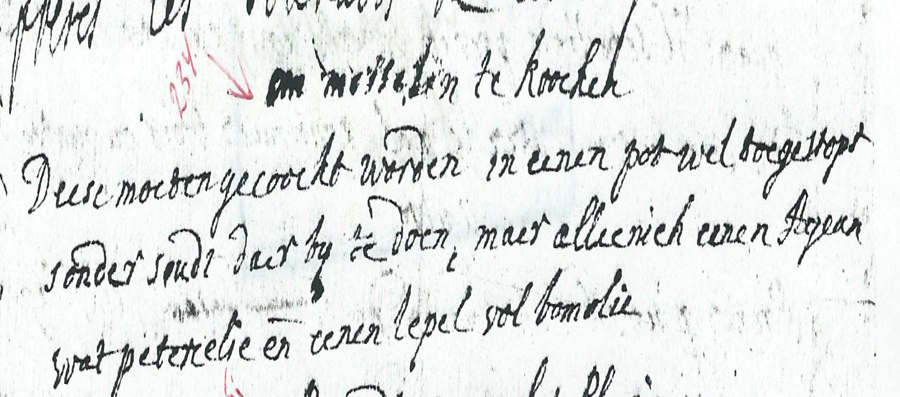 234
om mosselen te koochen
Deese moeten gecoockt worden in eenen pot wel toegestopt
sonder soudt daer by te doen, maer alleenich eenen Aijean
wat petercelie en̄ eenen lepel vol bomolie